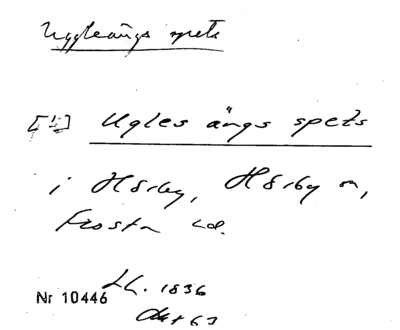 Uggleängs spets
[1] Ugles ängs spets
i Hörby, Hörby sn,
Frosta hd.
LK. 1836
Nr 10446
Akt 63